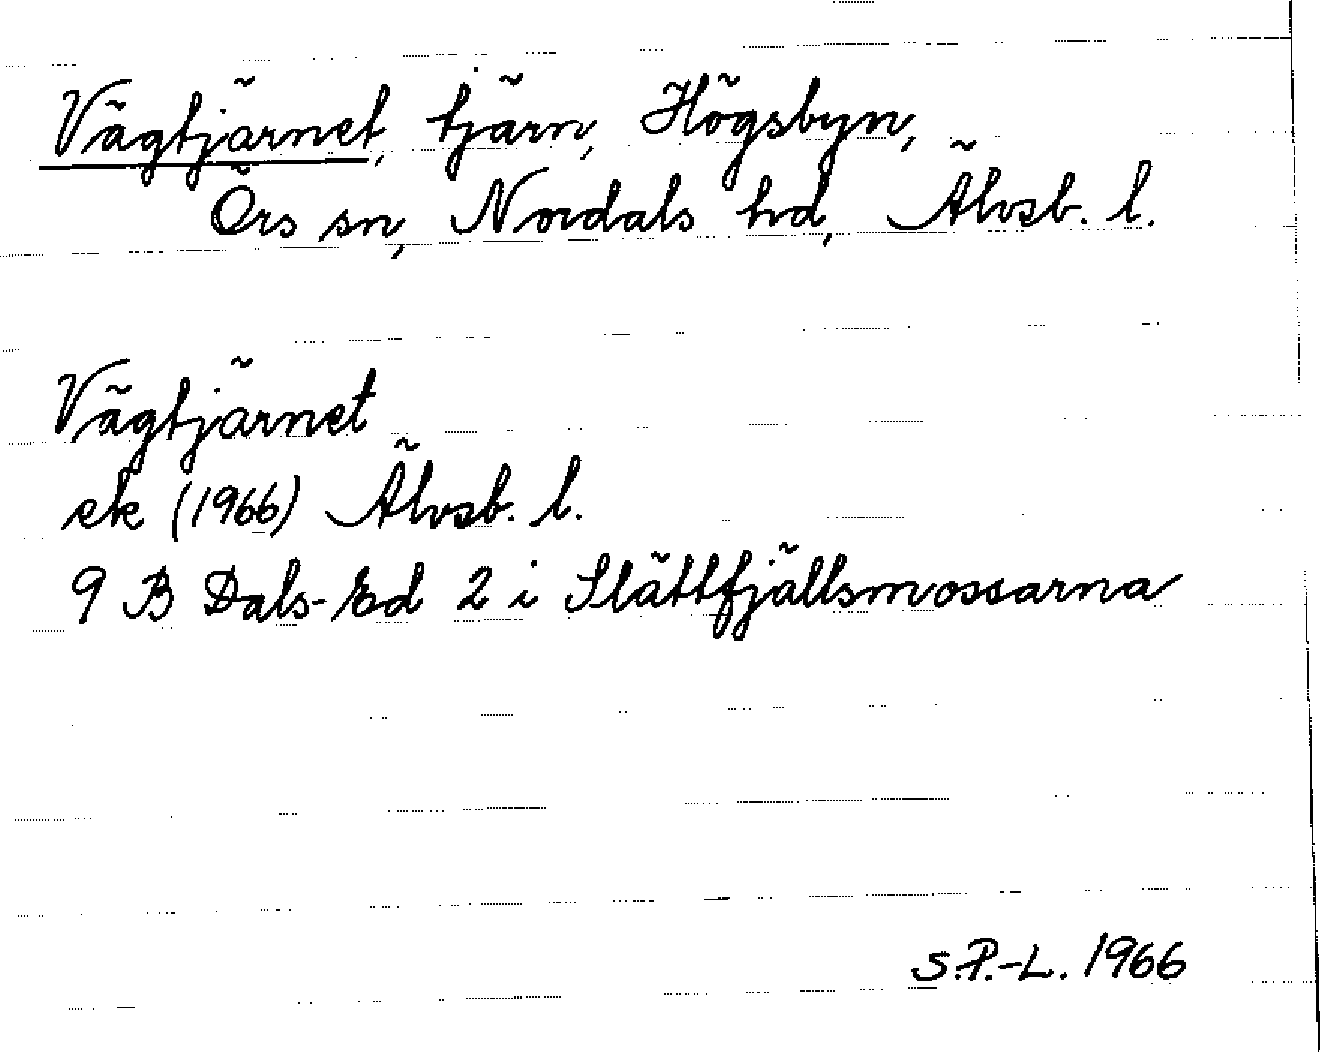 Vägtjärnet, tjärn, Högsbyn,
Örs sn, Nordals hd, Älvsb. l.
Vägtjärnet
ek (1966) Älvsb. l.
9 B Dals-Ed 2 i Slättfjällsmossarna
S.P.-L. 1966